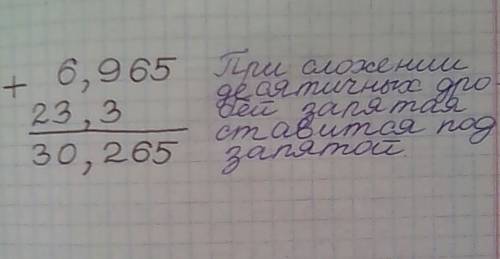 + 6,965
23,3
30,265
При сложении
десятичных дро
бей запятая
ставится под
запятой.